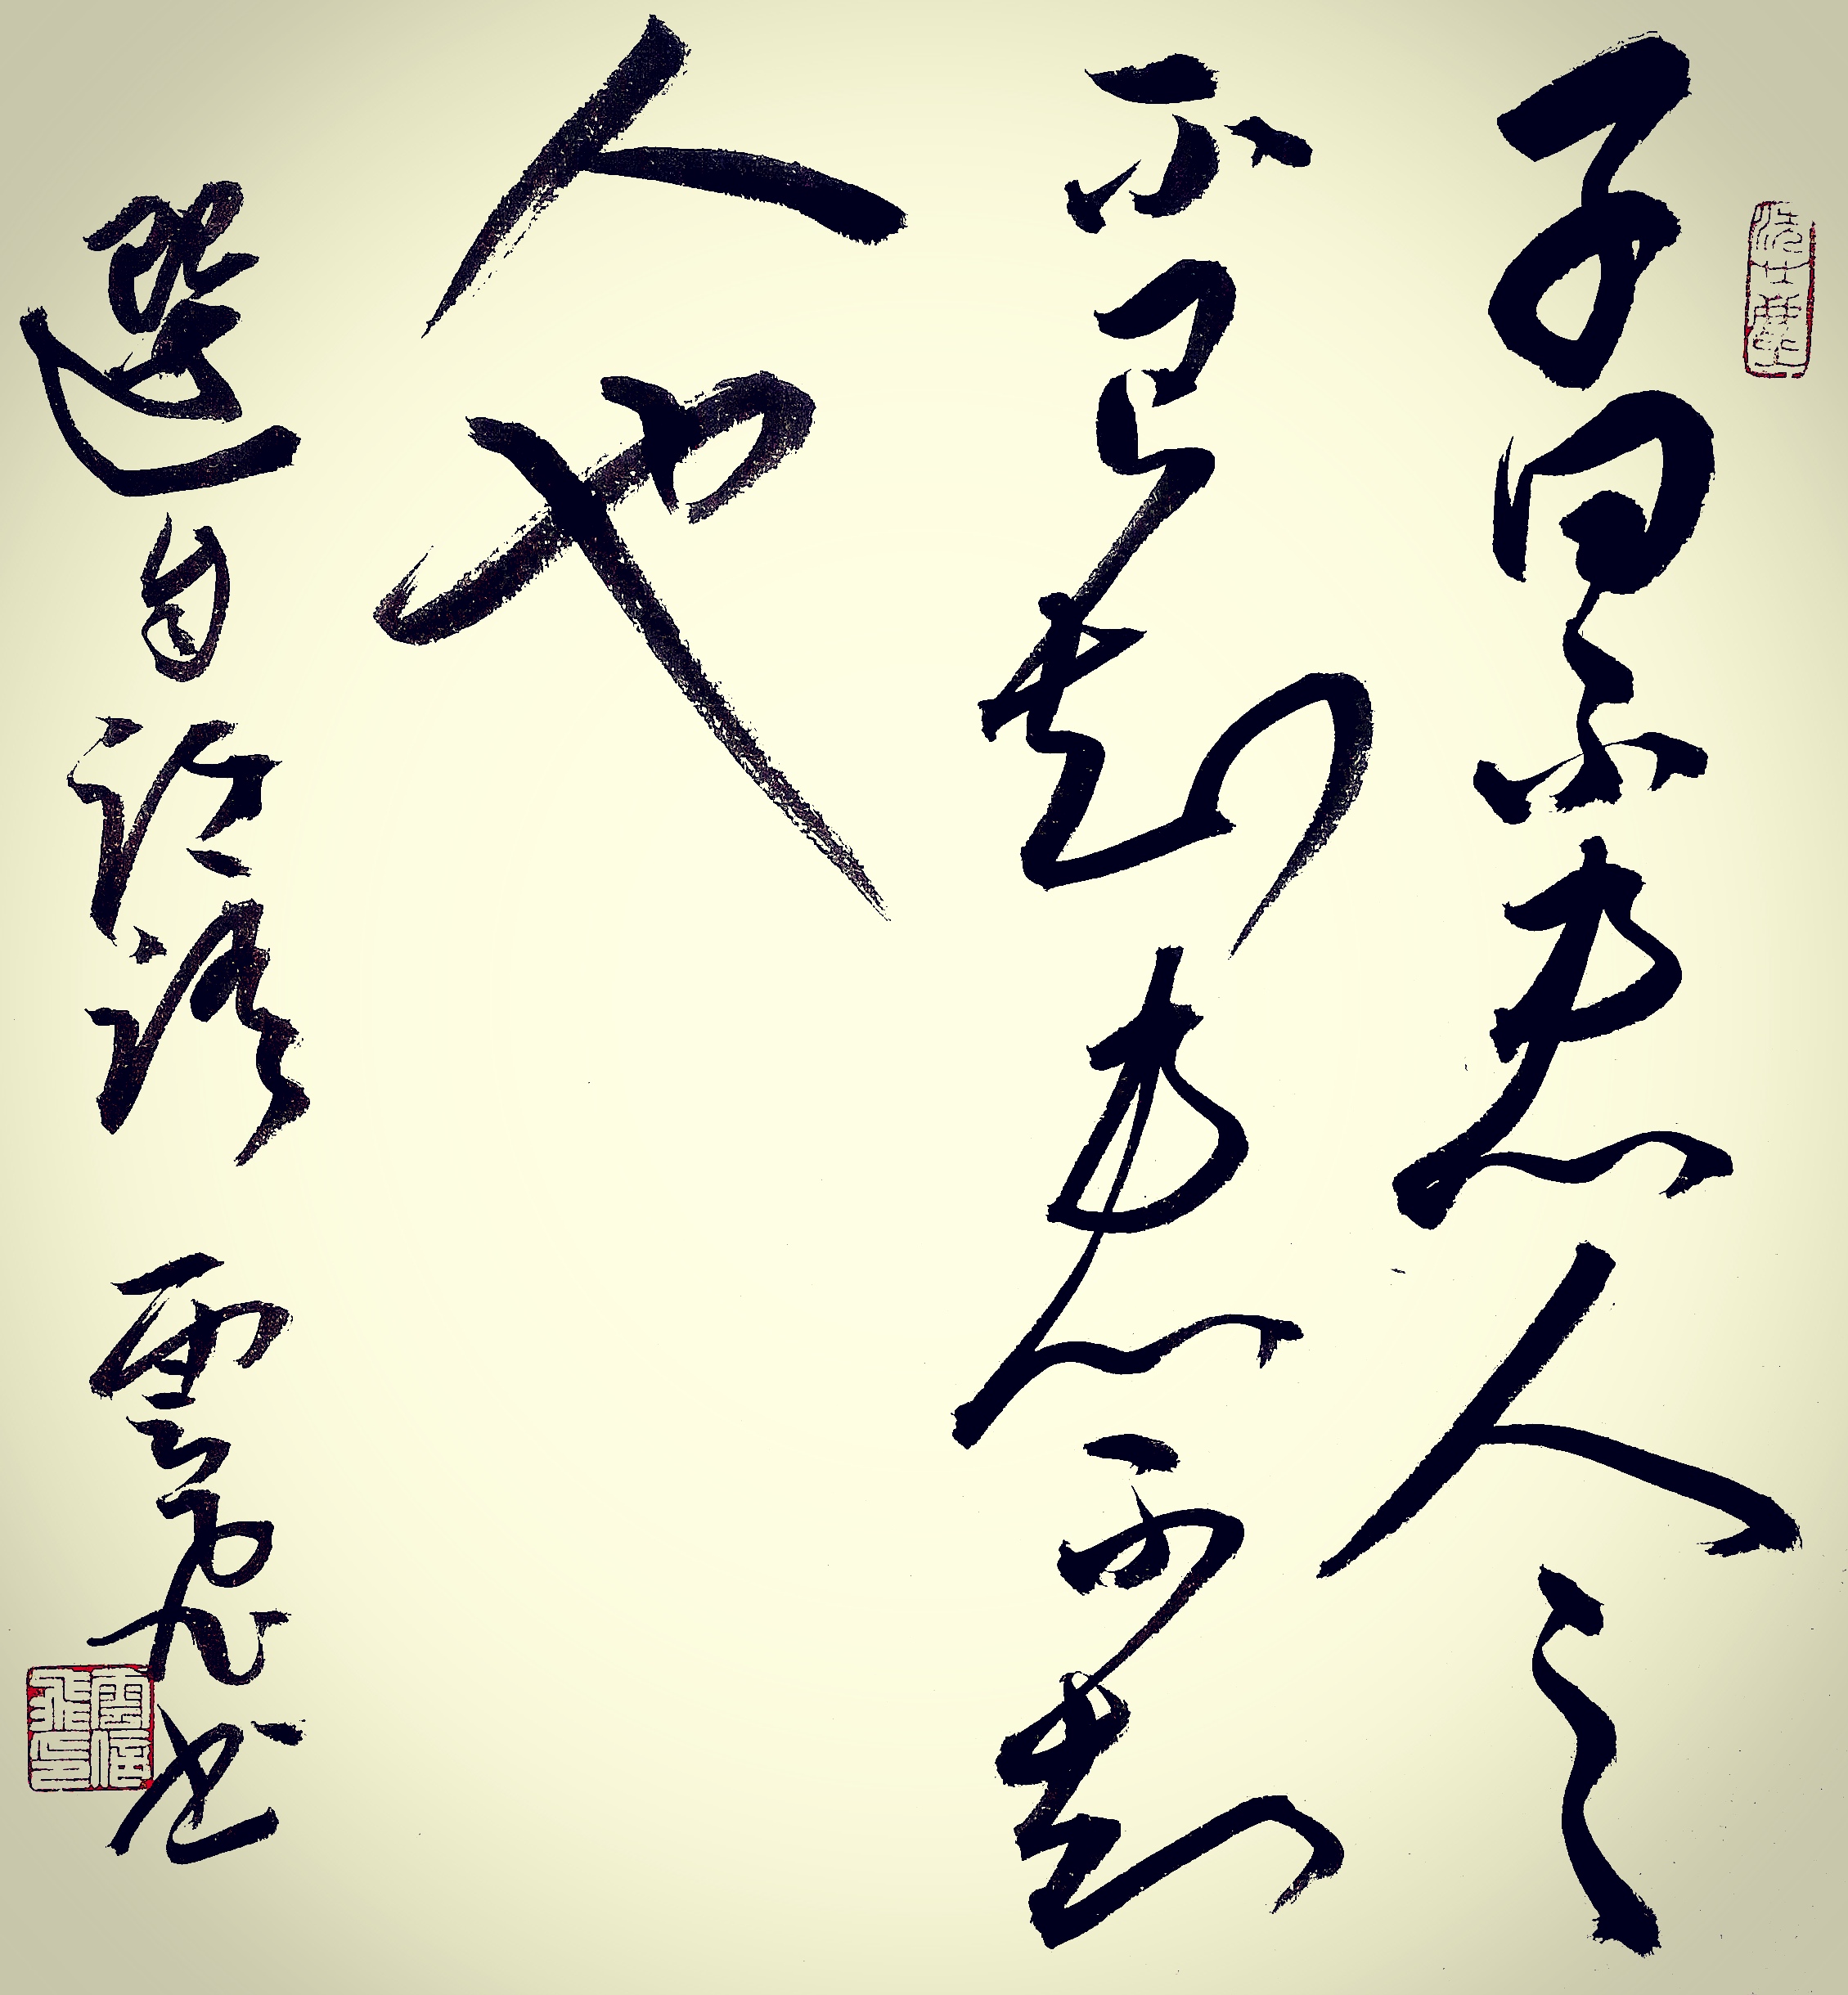 子曰不患人之
不己知患不知
人也
選自論語 雲飛書